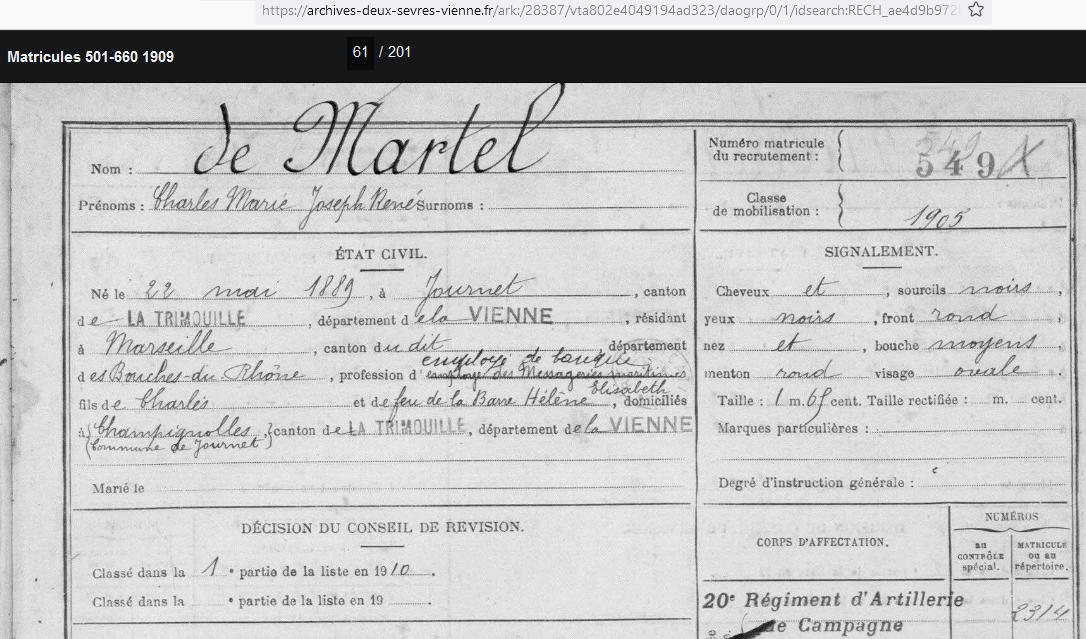 https://archives-deux-sevres-vienne.fr/ark:/28387/vta802e4049194ad323/daogrp/0/1/idsearch:RECH_ae4d9b972
Matricules 501-660 1909
61 / 201
Nom : de Martel
Prénoms : Charles Marie Joseph René Surnoms :
Numéro matricule
du recrutement : 549
Classe
de mobilisation : 1905
ÉTAT CIVIL.
Né le 22 mai 1889, à Journet, canton
de LA TRIMOUILLE, département de la VIENNE, résidant
à Marseille, canton du dit, département
employé de banque
des Bouches-du Rhône, profession d' employé des Messageries maritimes
Elisabeth
fils de Charles et de feu de la Barre Hélène, domiciliés
à Champignolles, canton de LA TRIMOUILLE, département de la VIENNE
(Commune de Journet)
Marié le
SIGNALEMENT.
Cheveux et, sourcils noirs,
yeux noirs, front rond
nez et, bouche moyens
menton rond visage ovale.
Taille : 1 m. 65 cent. Taille rectifiée : m. cent.
Marques particulières :
Degré d'instruction générale :
DÉCISION DU CONSEIL DE REVISION.
Classé dans la 1e partie de la liste en 1910.
Classé dans la e partie de la liste en 19.
CORPS D'AFFECTATION.
NUMÉROS
au
CONTRÔLE
spécial.
MATRICULE
ou au
répertoire.
20e Régiment d'Artillerie
de Campagne
2314